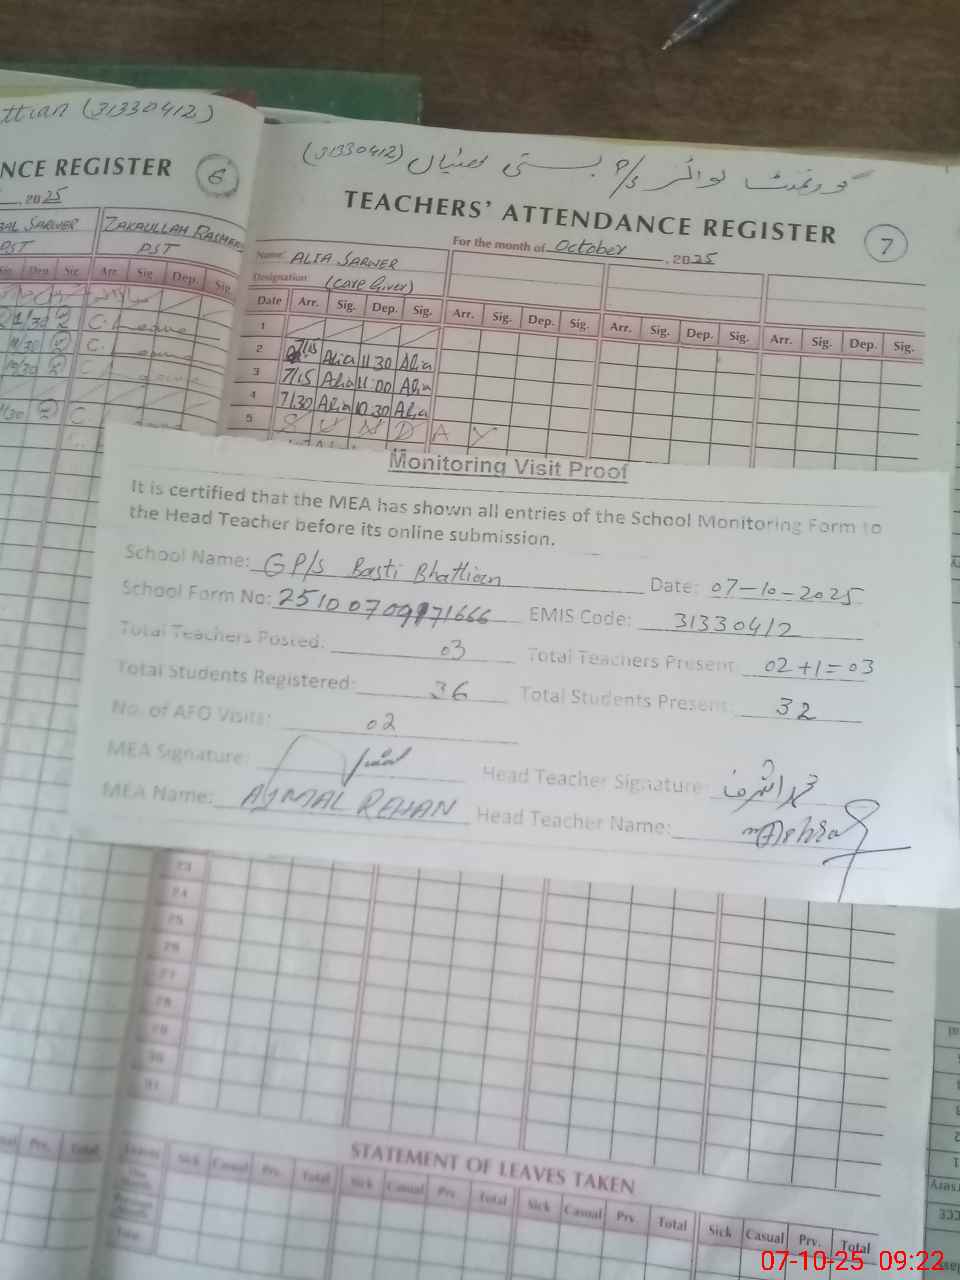 ttian (31330412)
NCE REGISTER 6
, 2025
SARWER ZAKAULLAH
PST PST
Sig. Dep. Sig. Arr. Sig. Dep. Sig.
گورنمنٹ بوائز P/S بستی بھٹیاں (31330412)
TEACHERS' ATTENDANCE REGISTER 7
For the month of October, 2025
Name: ALIA SARWER
Designation: (Care Giver)
Date Arr. Sig. Dep. Sig. Arr. Sig. Dep. Sig. Arr. Sig. Dep. Sig. Arr. Sig. Dep. Sig.
1
2 7/15 Alia 11:30 Alia
3 7/15 Alia 11:00 Alia
4 7/30 Alia 10:30 Alia
5 S U N D A Y
Monitoring Visit Proof
It is certified that the MEA has shown all entries of the School Monitoring Form to
the Head Teacher before its online submission.
School Name: GP/S Basti Bhattian Date: 07-10-2025
School Form No: EMIS Code: 31330412
Total Teachers Posted: 03 Total Teachers Present: 02+1=03
Total Students Registered: 36 Total Students Present: 32
No. of AFO Visits: 02
MEA Signature: Head Teacher Signature: محمد اشرف
MEA Name: AJMAL REHAN Head Teacher Name: M Ashraf
23
24
25
26
27
28
29
30
31
STATEMENT OF LEAVES TAKEN
Prv. Total Leaves Sick Casual Prv. Total Sick Casual Prv. Total Sick Casual Prv. Total Sick Casual Prv. Total
07-10-25 09:22